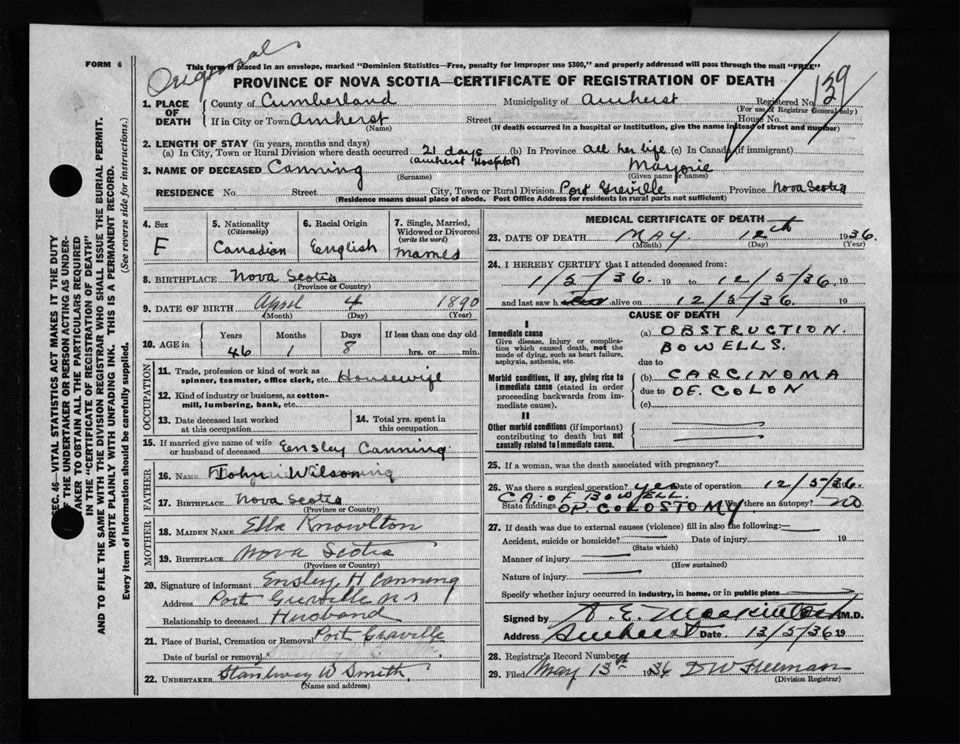 FORM 6
Original
This form if placed in an envelope, marked "Dominion Statistics—Free, penalty for improper use $300," and properly addressed will pass through the mail "FREE"
PROVINCE OF NOVA SCOTIA—CERTIFICATE OF REGISTRATION OF DEATH
1. PLACE OF DEATH
County of Cumberland Municipality of Amherst Registered No.
(For use of Registrar General only)
If in City or Town Amherst Street House No.
(Name) (If death occurred in a hospital or institution, give the name instead of street and number)
2. LENGTH OF STAY (in years, months and days)
(a) In City, Town or Rural Division where death occurred 21 days (b) In Province all her life (c) In Canada (if immigrant)
(Amherst Hospital)
3. NAME OF DECEASED Canning Marjorie
(Surname) (Given name or names)
RESIDENCE No. Street City, Town or Rural Division Port Greville Province Nova Scotia
(Residence means usual place of abode. Post Office Address for residents in rural parts not sufficient)
4. Sex F
5. Nationality (Citizenship) Canadian
6. Racial Origin English
7. Single, Married, Widowed or Divorced (write the word) Married
8. BIRTHPLACE Nova Scotia
(Province or Country)
9. DATE OF BIRTH April 4 1890
(Month) (Day) (Year)
10. AGE in Years Months Days If less than one day old
46 1 8 hrs. or min.
OCCUPATION
11. Trade, profession or kind of work as spinner, teamster, office clerk, etc. Housewife
12. Kind of industry or business, as cotton-mill, lumbering, bank, etc.
13. Date deceased last worked at this occupation
14. Total yrs. spent in this occupation
15. If married give name of wife or husband of deceased Ensley Canning
FATHER
16. NAME John Wilson
17. BIRTHPLACE Nova Scotia
(Province or Country)
MOTHER
18. MAIDEN NAME Ella Knowlton
19. BIRTHPLACE Nova Scotia
(Province or Country)
20. Signature of informant Ensley H Canning
Address Port Greville N S
Relationship to deceased Husband
21. Place of Burial, Cremation or Removal Port Graville
Date of burial or removal
22. UNDERTAKER W Smith
(Name and address)
MEDICAL CERTIFICATE OF DEATH
23. DATE OF DEATH MAY 12th 1936.
(Month) (Day) (Year)
24. I HEREBY CERTIFY that I attended deceased from:
1/5/36. 19 to 12/5/36. 19
and last saw h alive on 12/5/36. 19
CAUSE OF DEATH
I
Immediate cause
Give disease, injury or complication which caused death, not the mode of dying, such as heart failure, asphyxia, asthenia, etc.
(a) OBSTRUCTION.
BOWELLS.
due to
Morbid conditions, if any, giving rise to immediate cause (stated in order proceeding backwards from immediate cause).
(b) CARCINOMA
due to OF. COLON
(c)
II
Other morbid conditions (if important) contributing to death but not causally related to immediate cause.
25. If a woman, was the death associated with pregnancy?
26. Was there a surgical operation? yes Date of operation 12/5/36.
CA. OF BOWELL.
State findings OP. COLOSTOMY Was there an autopsy? NO
27. If death was due to external causes (violence) fill in also the following:
Accident, suicide or homicide? Date of injury 19
(State which)
Manner of injury
(How sustained)
Nature of injury
Specify whether injury occurred in industry, in home, or in public place
Signed by A. E. Mackintosh M.D.
Address Amherst Date. 13/5/36 19
28. Registrar's Record Number
29. Filed May 13th 1936 D W Freeman
(Division Registrar)
SEC. 46—VITAL STATISTICS ACT MAKES IT THE DUTY
OF THE UNDERTAKER OR PERSON ACTING AS UNDER-
TAKER TO OBTAIN ALL THE PARTICULARS REQUIRED
IN THE "CERTIFICATE OF REGISTRATION OF DEATH"
AND TO FILE THE SAME WITH THE DIVISION REGISTRAR WHO SHALL ISSUE THE BURIAL PERMIT.
WRITE PLAINLY WITH UNFADING INK. THIS IS A PERMANENT RECORD.
Every item of information should be carefully supplied. (See reverse side for instructions.)